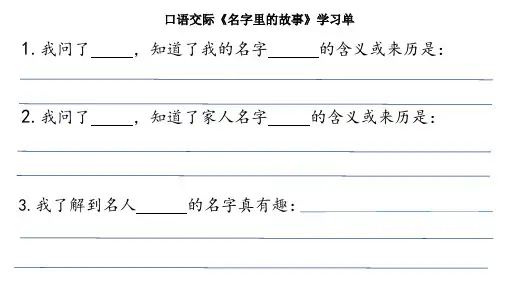 口语交际《名字里的故事》学习单
1.我问了_____，知道了我的名字______的含义或来历是：
2.我问了_____，知道了家人名字_____的含义或来历是：
3.我了解到名人______的名字真有趣：